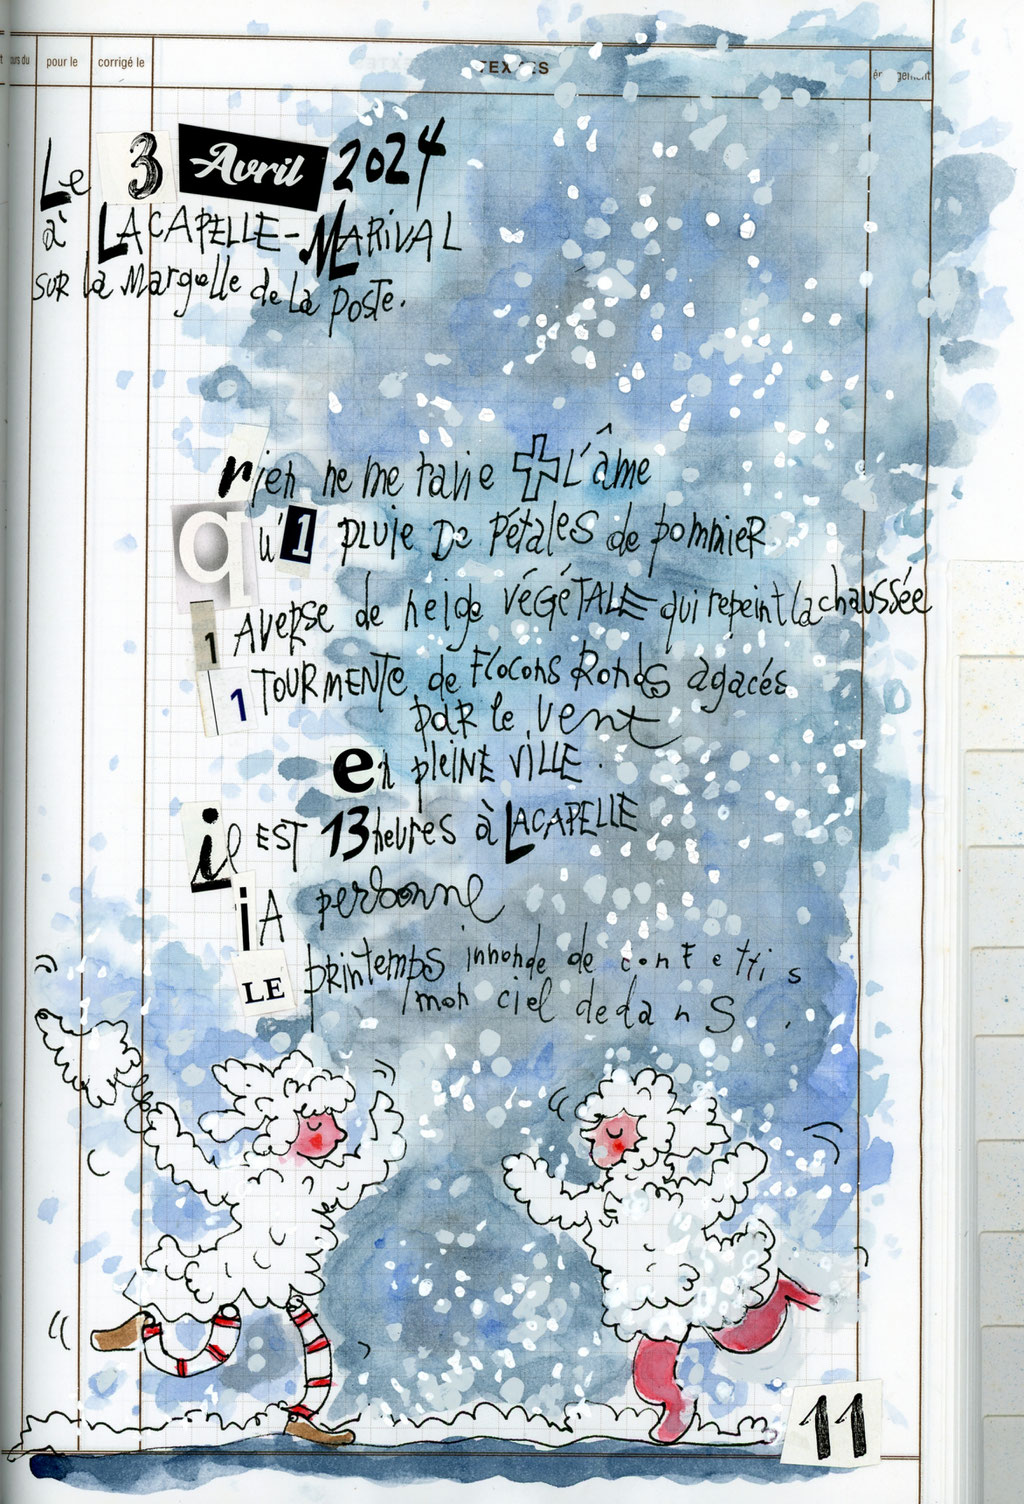 pour le
corrigé le
TEXTES
Le 3 Avril 2024
à LACAPELLE-MARIVAL
SUR la Margelle de La POSTE.
rien ne me ravie + L'âme
qu'1 PLUIE De PétaLES de pommIER
1 AVERSE de neige VÉGÉTALE qui repeint la chaussée
1 TOURMENTe de Flocons RONdS agacés
PAR le vent
en pleINE VILLE.
il EST 13 heures à LACAPELLE
i A personne
LE printemps innonde de confettis
mon ciel dedanS.
11